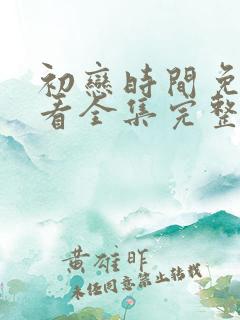 初戀時間免
看全集完整
黄雄昨
未任同意禁止转载